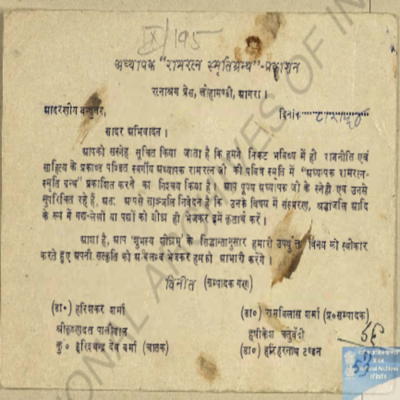 IX/195
अध्यापक "रामरत्न स्मृतिग्रन्थ"-प्रकाशन
रत्नाश्रम प्रेस, लोहामण्डी, आगरा।
आदरणीय बन्धुवर,
दिनांक
सादर अभिवादन।
आपको सस्नेह सूचित किया जाता है कि हमने निकट भविष्य में ही राजनीति एवं
साहित्य के प्रकाण्ड पण्डित स्वर्गीय अध्यापक रामरत्न जी की पवित्र स्मृति में "अध्यापक रामरत्न-
स्मृति ग्रन्थ" प्रकाशित करने का निश्चय किया है। आप पूज्य अध्यापक जी के स्नेही एवं उनसे
सुपरिचित रहे हैं, अतः आपसे साञ्जलि निवेदन है कि उनके विषय में संस्मरण, श्रद्धांजलि आदि
के रूप में गद्य-लेखों या पद्यों को शीघ्र ही भेजकर हमें कृतार्थ करें।
आशा है, आप 'शुभस्य शीघ्रम्' के सिद्धान्तानुसार हमारी उपर्युक्त विनय को स्वीकार
करते हुए अपनी संस्कृति को अविलम्ब भेजकर हमको आभारी करेंगे।
विनीत (सम्पादक गण)
(डा०) हरिशंकर शर्मा
(डा०) रामविलास शर्मा (प्र०सम्पादक)
श्रीकृष्णदत्त पालीवाल
हृषीकेश चतुर्वेदी
कु० हरिश्चन्द्र देव वर्मा (चातक)
(डा०) हरिहरनाथ टण्डन
NATIONAL ARCHIVES OF INDIA